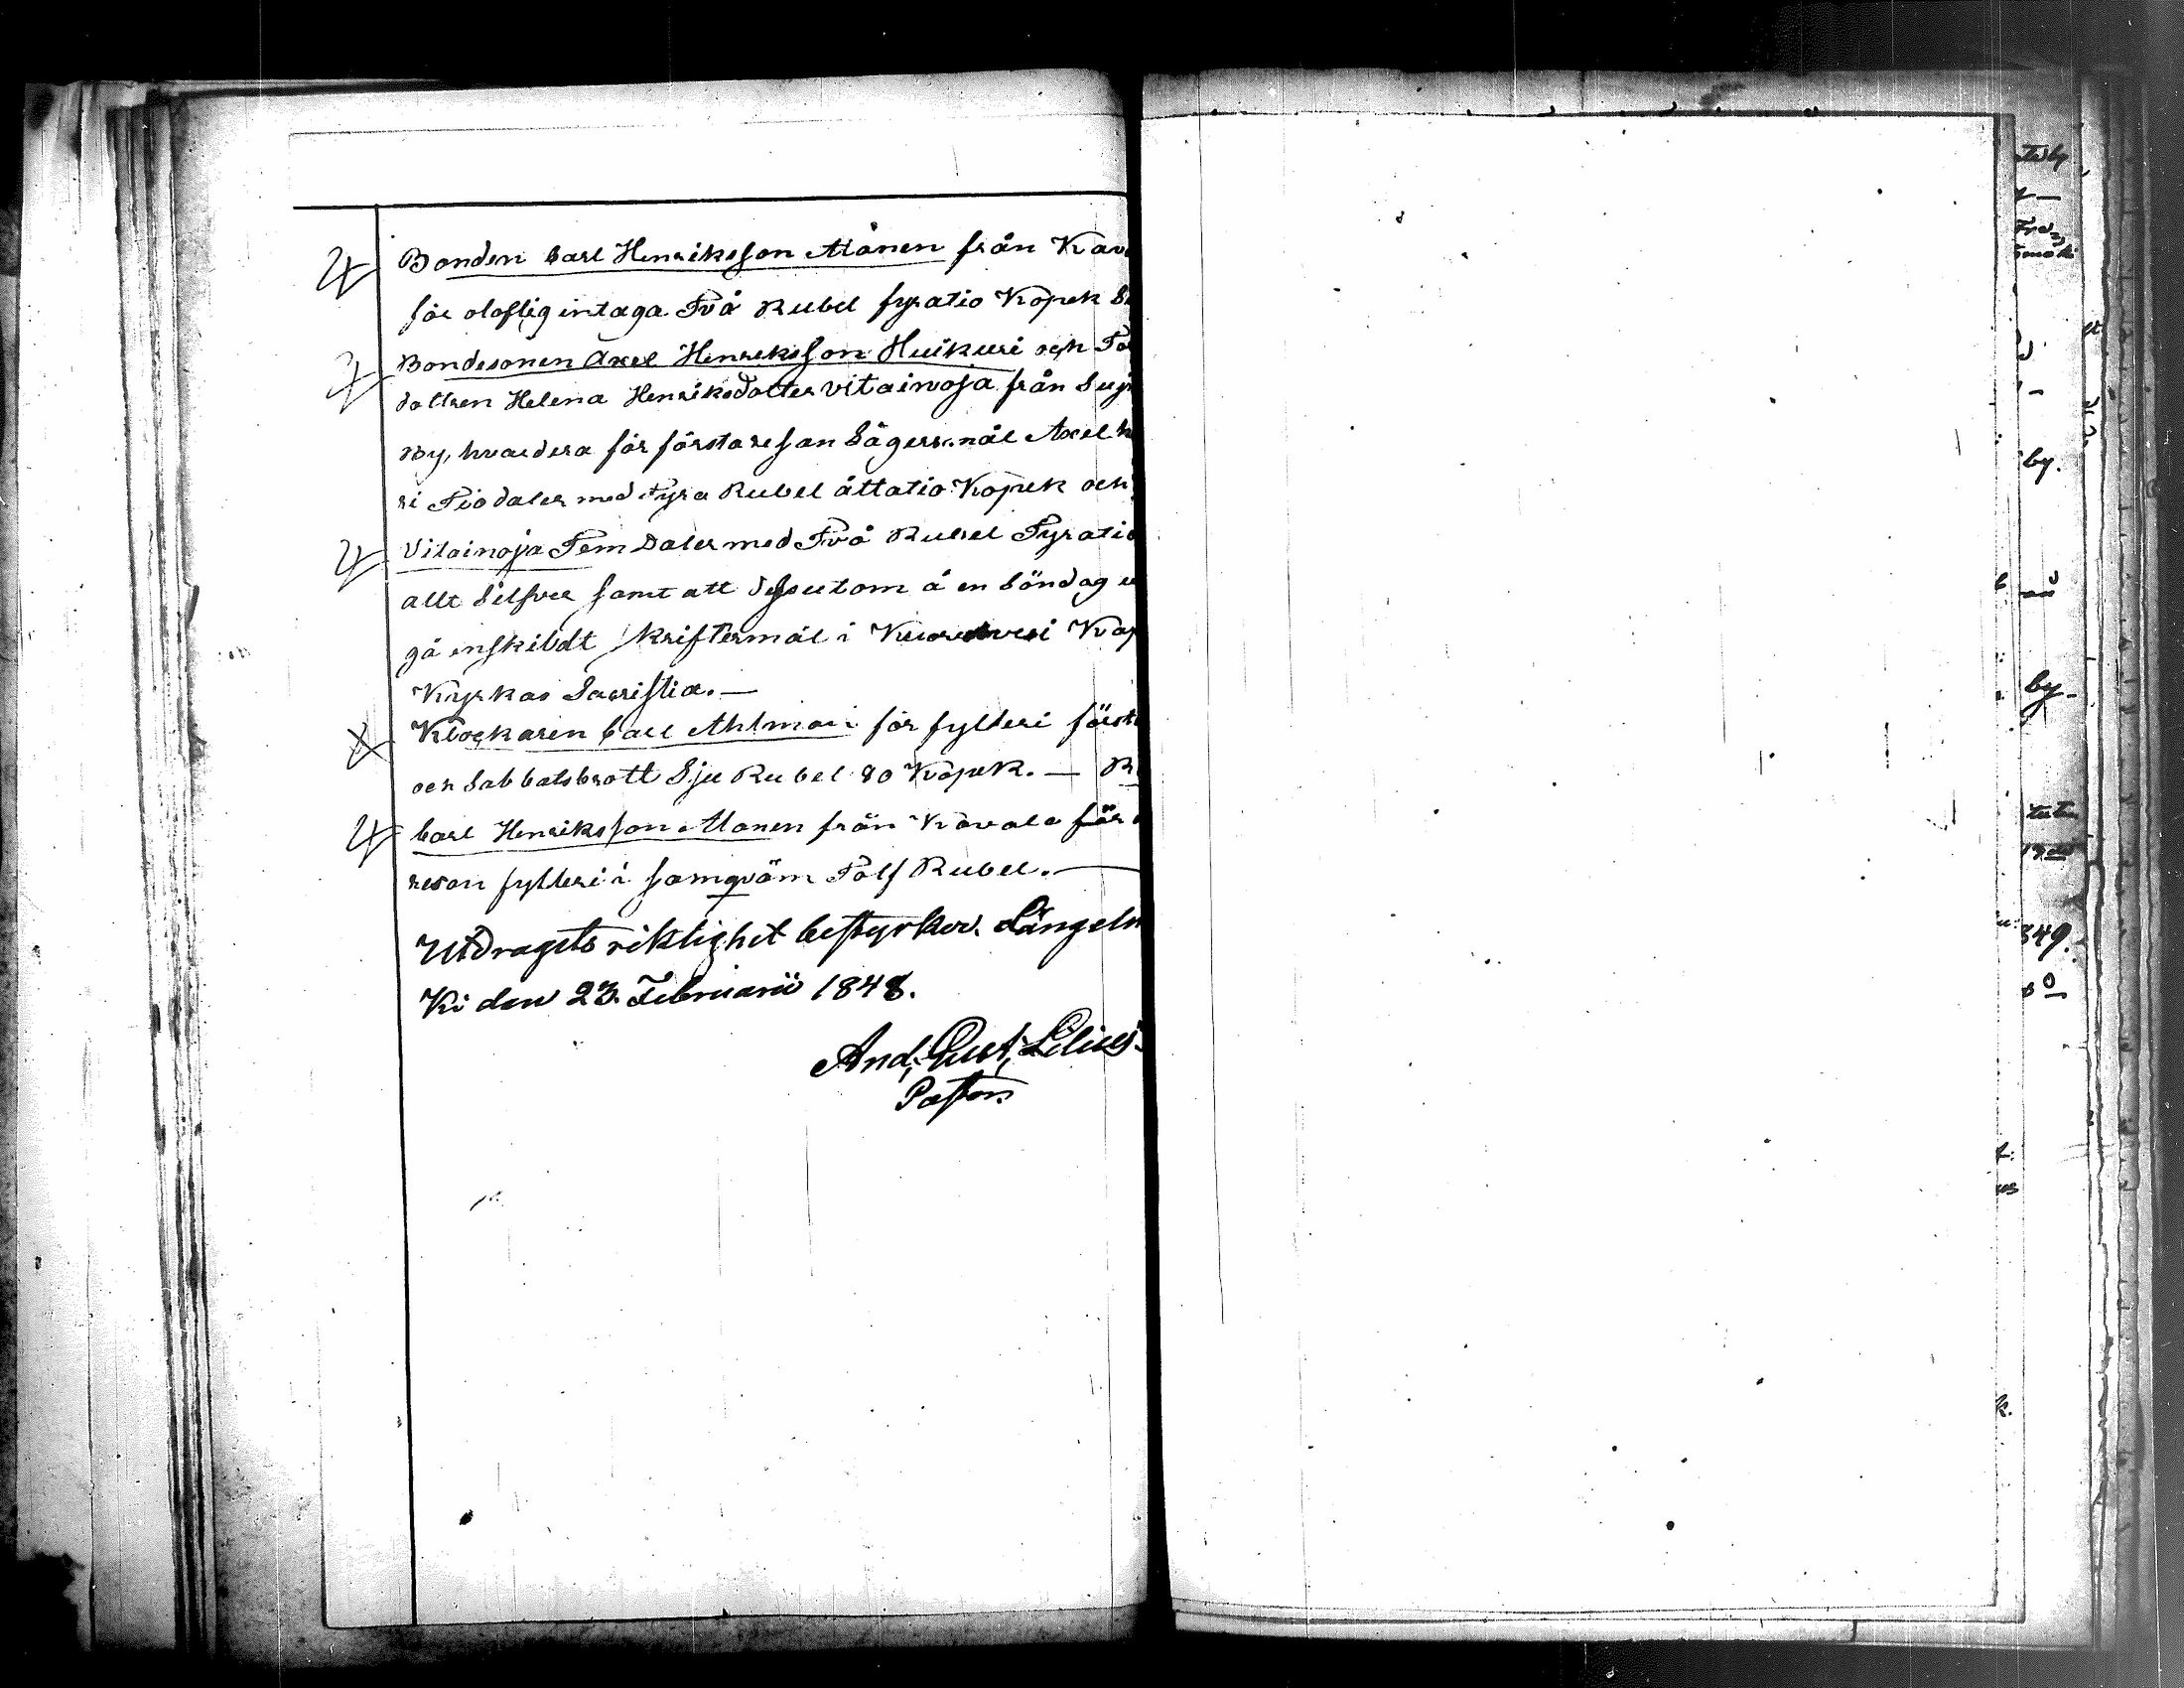 Bonden Carl Henriksson Alanen från Kava
för oloflig intaga Två Rubel fyratio Kopek S
Bondesonen Axel Henriksson Huikuri och Tor
dottren Helena Henriksdotter Vitainoja från Suj
By, hvardera för första resan Lägersmål Axel H
ri Tio daler med fyra Rubel åttatio Kopek och
Vitainoja Fem Daler med Två Rubel Fyratio
allt Silfver samt att dessutom å en Söndag u
gå enskildt skriftermål i Kuorevesi Kap
Kyrkas Sacristia. —
Klockaren Carl Ahlman för fylleri först
och Sabbatsbrott Sju Rubel 80 Kopek. — R
Carl Henriksson Alanen från Kavala för
resan fylleri i samqväm Tolf Rubel. —
Utdragets riktighet bestyrker. Längelm
ki den 23. Februarii 1848.
And. Gust. Lilius
Pastor
by.
by
349.